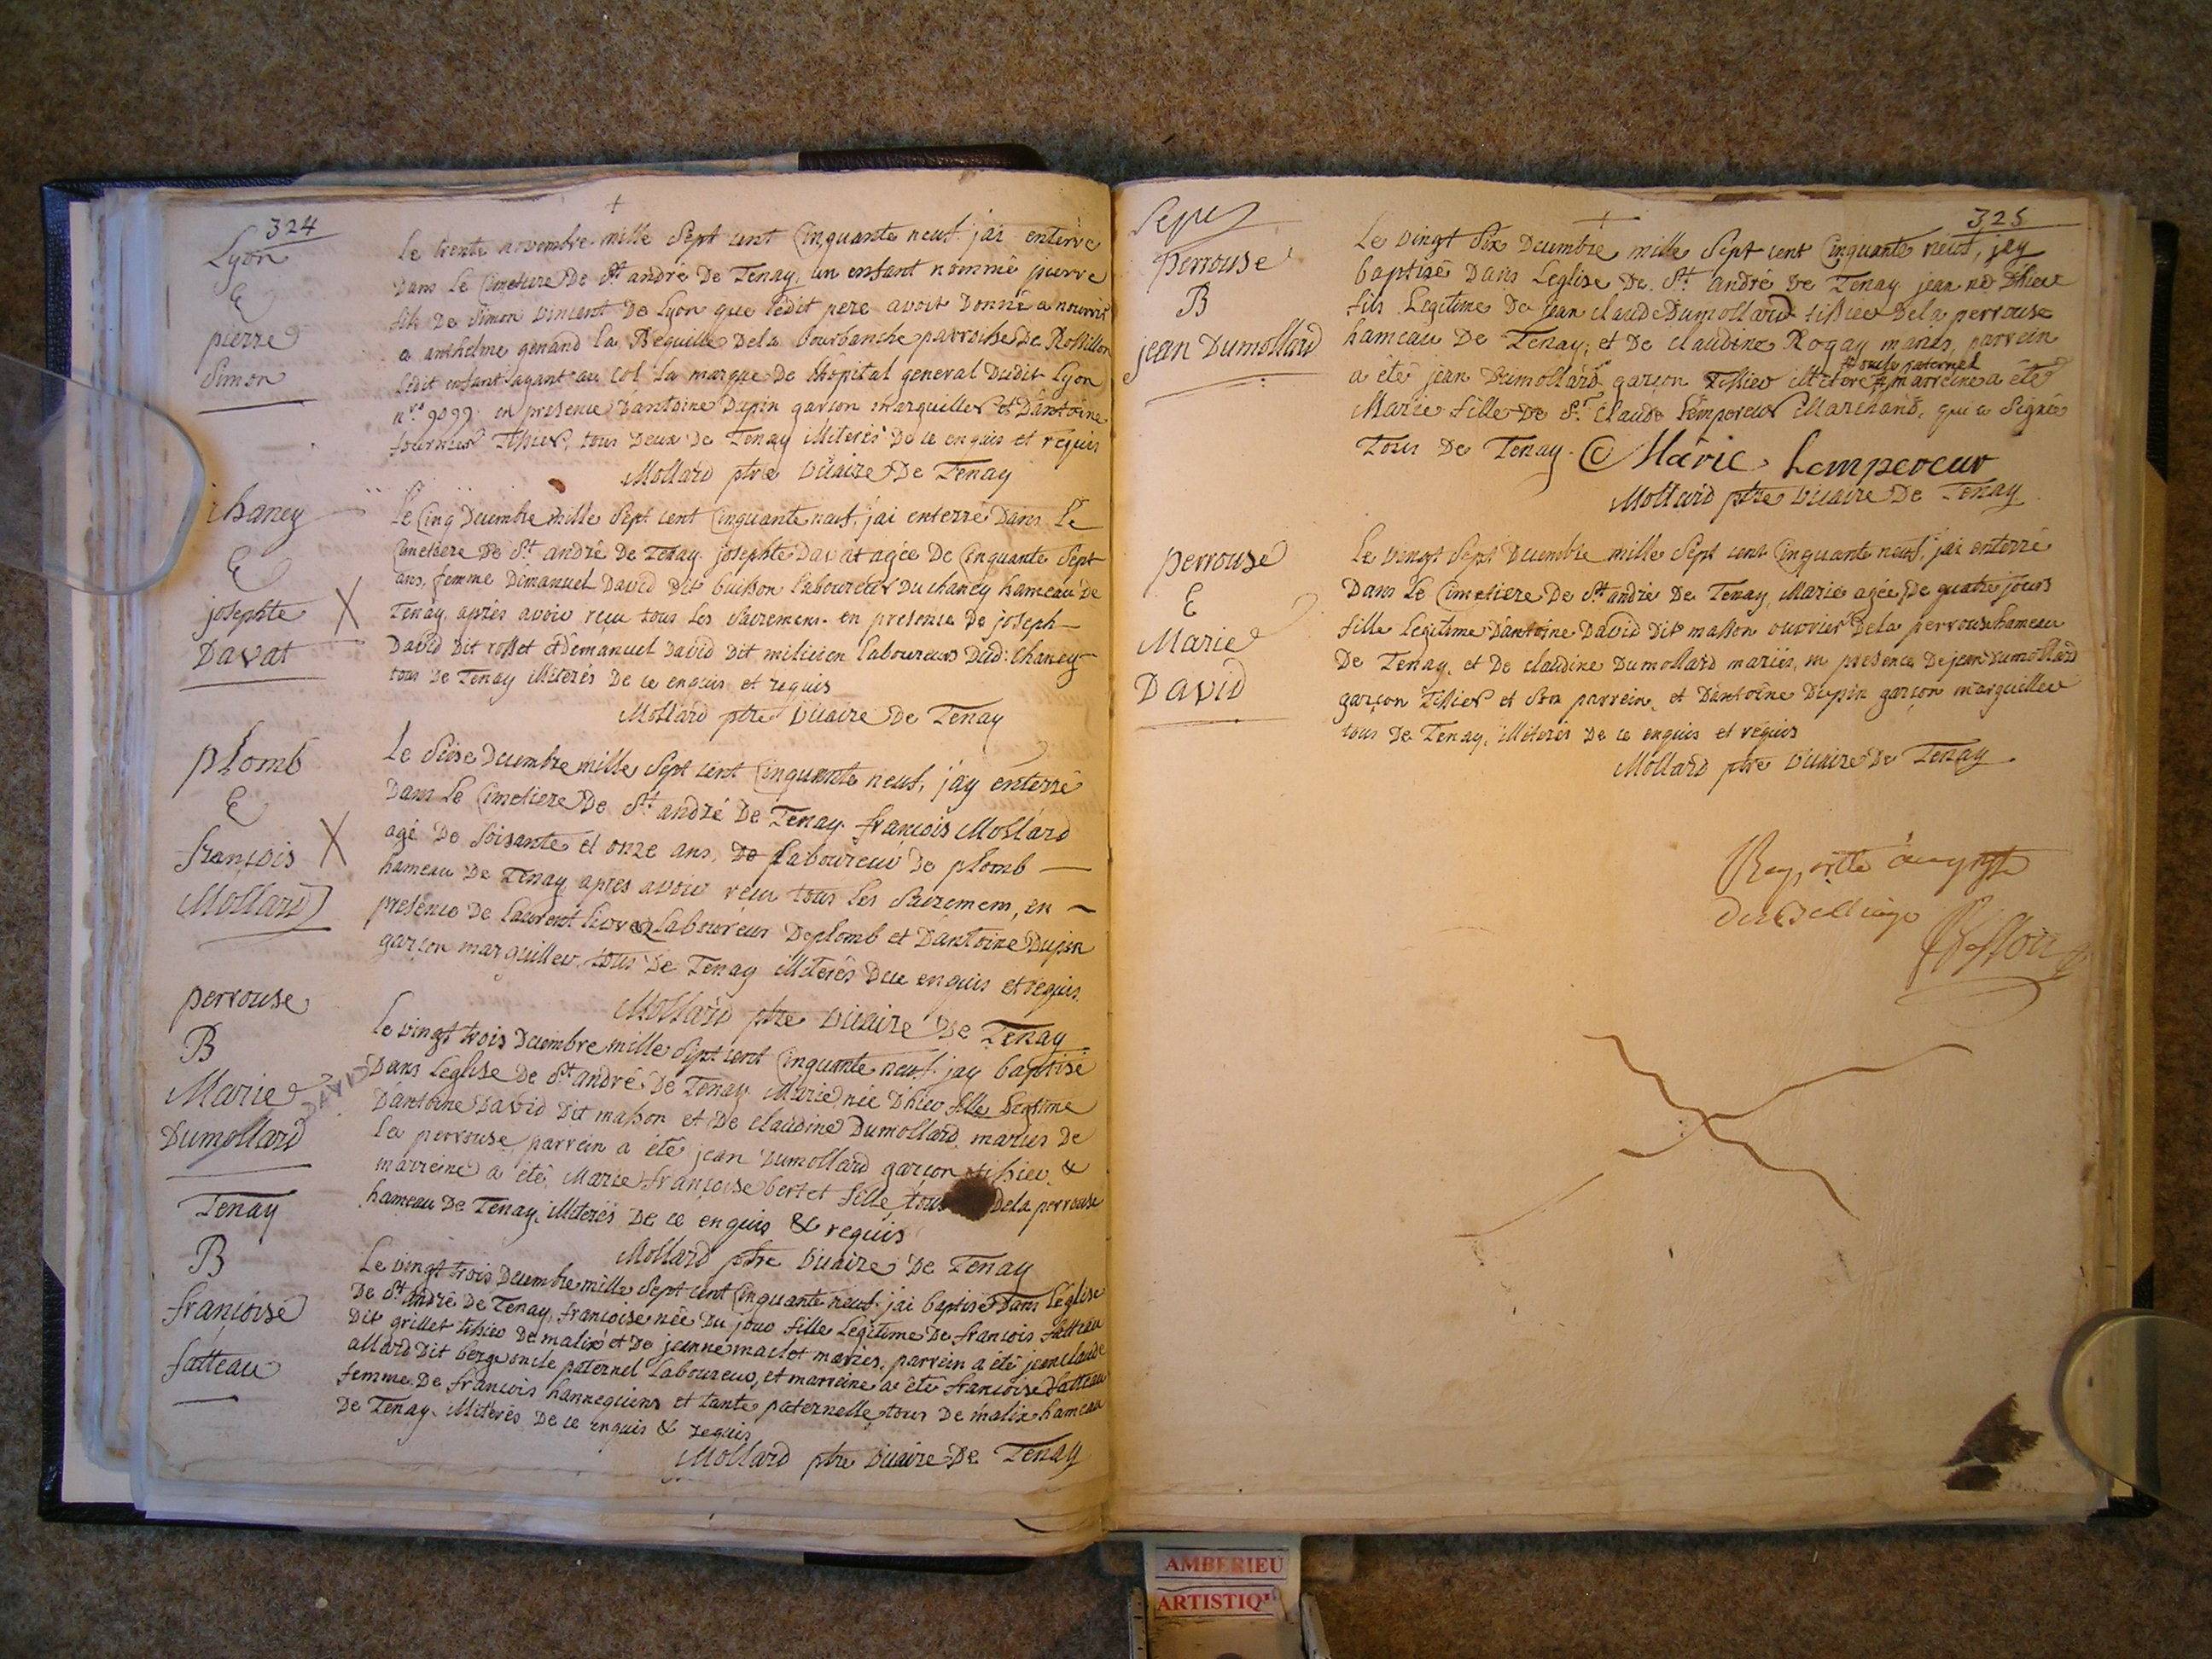 324
Lyon
E
pierre
Simon
Le trente novembre mille Sept cent Cinquante neuf. j'ai enterré
Dans Le Cimetiere De St andré De Tenay, un enfant nommé pierre
fils De Simon vincent De Lyon que ledit pere avoit Donné a nourrir
a anthelme genand la Beguille Dela bourbanche parroisse De Rossillon
Ledit enfant ayant au Col La marque De l'hôpital general Dudit Lyon
nro 9099. en presence D'antoine Dupin garçon marguiller et D'antoine
fournier Tissier, tous Deux De Tenay illiterés De ce enquis et requis
Mollard ptre vicaire De Tenay
chaney
E
josephte
Davat
Le Cinq Decembre mille Sept cent Cinquante neuf, j'ai enterré Dans Le
Cimetiere De St andré De Tenay josephte Davat agée De Cinquante Sept
ans, femme D'Emanuel David Dit buisson Laboureur Du chaney hameau De
Tenay, aprés avoir reçu tous Les Sacremens. en presence De joseph
David Dit rosset et D'emanuel David Dit milicien Laboureurs Dud: Chaney
tous De Tenay illiterés De ce enquis et requis
Mollard ptre vicaire De Tenay
plomb
E
françois
Mollard
Le Seise Decembre mille Sept cent Cinquante neuf, j'ay enterré
Dans Le Cimetiere De St andré De Tenay. françois Mollard
agé De Soisante et onze ans, De Laboureur De plomb
hameau De Tenay apres avoir recu tous Les Sacremens, en
presence De Laurent Laboureur De plomb et D'antoine Dupin
garçon marguiller, tous De Tenay illiterés De ce enquis et requis.
Mollard ptre vicaire De Tenay
perrouse
B
Marie DAVID
Dumollard
Le vingt trois Decembre mille Sept cent Cinquante neuf j'ay baptisé
Dans L'eglise De St andré De Tenay Marie née D'hier fille Legitime
D'antoine David Dit masson et De Claudine Dumollard mariés De
La perrouse, parrein a été jean Dumollard garçon tissier, &
marreine a été Marie françoise bertet fille, tous Dela perrouse
hameau De Tenay, illiterés De ce enquis & requis
Mollard ptre vicaire De Tenay
Tenay
B
françoise
fatteau
Le vingt trois Decembre mille Sept cent Cinquante neuf j'ai baptisé Dans L'eglise
De St andré De Tenay, françoise née Du jour fille Legitime De françois fatteau
Dit grillet tissier De malix et De jeanne maclet mariés, parrein a été jean claude
allard Dit berge oncle paternel Laboureur, et marreine a été françoise fatteau
femme De françois hannequiens et tante paternelle, tous De malix hameau
De Tenay. illiterés De ce enquis & requis
Mollard ptre vicaire De Tenay
325
perrouse
B
jean Dumollard
Le vingt Six Decembre mille Sept cent Cinquante neuf, j'ay
baptisé Dans L'eglise De St andré De Tenay jean né D'hier
fils Legitime De jean claude Dumollard tissier Dela perrouse
hameau De Tenay; et De claudine Rogay mariés, parrein
# oncle paternel
a été jean Dumollard garçon Tissier illiteré # marreine a été
Marie fille De Sr. Claude Lempereur Marchand, qui a Signé
Tous De Tenay. Marie Lempereur
Mollard ptre vicaire De Tenay
perrouse
E
Marie
David
Le vingt Sept Decembre mille Sept cent Cinquante neuf, j'ai enterré
Dans Le Cimetiere De St andré De Tenay, Marie agée De quatre jours
fille Legitime D'antoine David Dit masson ouvrier Dela perrouse hameau
De Tenay, et De claudine Dumollard mariés, en presence De jean Dumollard
garçon Tissier et Son parrein, et D'antoine Dupin garçon marguiller
tous De Tenay, illiterés De ce enquis et requis
Mollard ptre vicaire De Tenay
AMBERIEU
ARTISTIQ